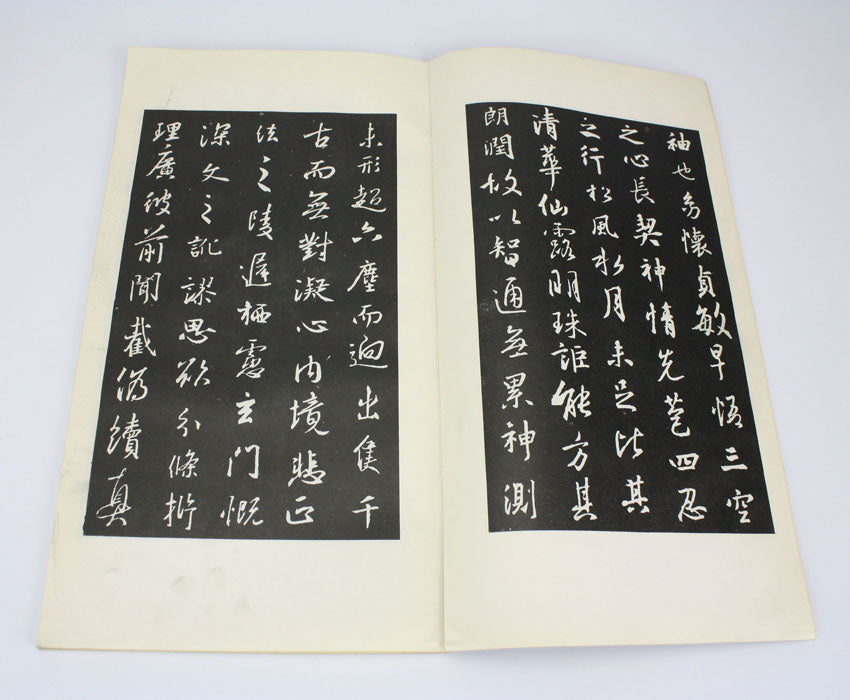 袖也幼懷貞敏早悟三空
之心長契神情先苞四忍
之行松風水月未足比其
清華仙露明珠詎能方其
朗潤故以智通無累神測
未形超六塵而迥出隻千
古而無對凝心內境悲正
法之陵遲栖慮玄門慨
深文之訛謬思欲分條析
理廣彼前聞截偽續真